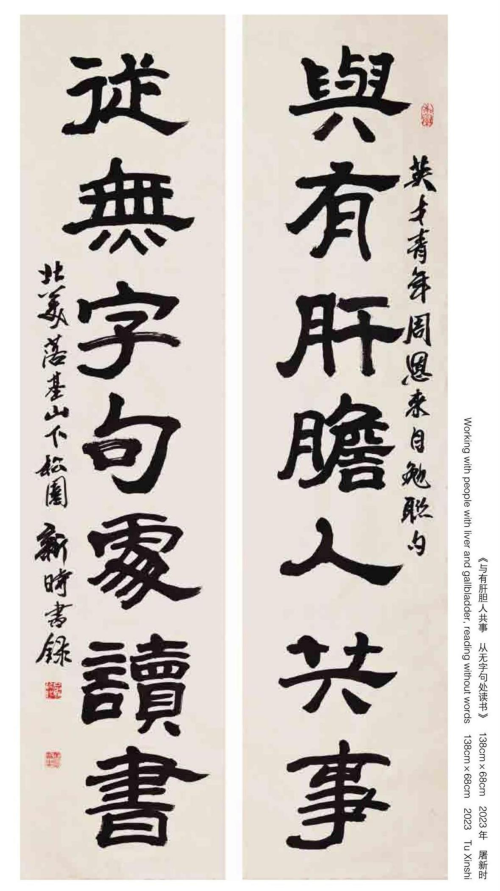 與有肝膽人共事
英才青年周恩来自勉聯句
從無字句處讀書
北美落基山下松園 新時书録
《与有肝胆人共事 从无字句处读书》 138cm×68cm 2023年 屠新时
Working with people with liver and gallbladder, reading without words 138cm×68cm 2023 Tu Xinshi